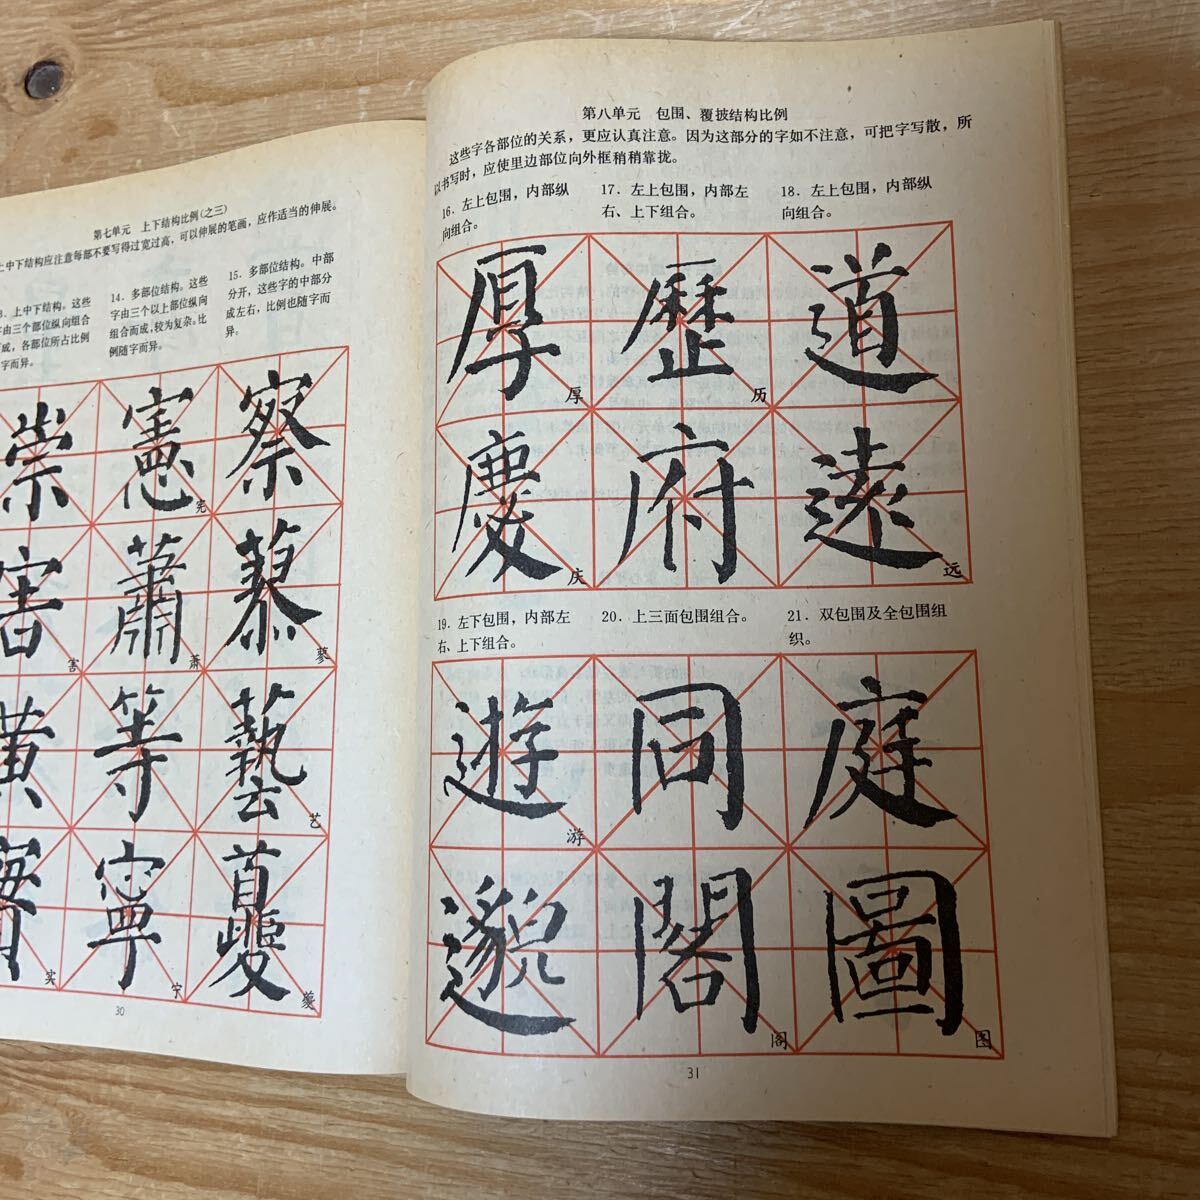 第七单元　上下结构比例(之三)
上中下结构应注意每部不要写得过宽过高，可以伸展的笔画，应作适当的伸展。
上中下结构。这些
字由三个部位纵向组合
而成，各部位所占比例
字而异。
14．多部位结构。这些
字由三个以上部位纵向
组合而成，较为复杂。比
例随字而异。
15．多部位结构。中部
分开，这些字的中部分
成左右，比例也随字而
异。
崇 憲 察
宪
害 蕭
害 萧 蓼
黄 等 藝
艺
寧 夔
实 宁 夔
30
第八单元　包围、覆披结构比例
这些字各部位的关系，更应认真注意。因为这部分的字如不注意，可把字写散，所
以书写时，应使里边部位向外框稍稍靠拢。
16．左上包围，内部纵
向组合。
17．左上包围，内部左
右、上下组合。
18．左上包围，内部纵
向组合。
厚 歷 道
厚 历
慶 府 遠
庆 远
19．左下包围，内部左
右、上下组合。
20．上三面包围组合。
21．双包围及全包围组
织。
遊 同 庭
游
邈 閣 圖
阁 图
31